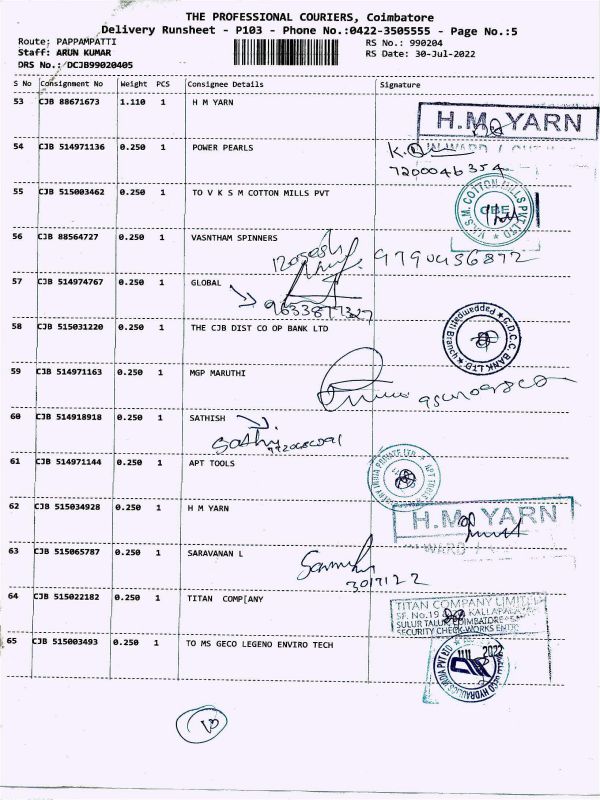 THE PROFESSIONAL COURIERS, Coimbatore
Delivery Runsheet - P103 - Phone No.:0422-3505555 - Page No.:5
Route: PAPPAMPATTI RS No.: 990204
Staff: ARUN KUMAR RS Date: 30-Jul-2022
DRS No.: DCJB99020405
S No Consignment No Weight PCS Consignee Details Signature
53 CJB 88671673 1.110 1 H M YARN
H.M YARN
54 CJB 514971136 0.250 1 POWER PEARLS
7200046354
55 CJB 515003462 0.250 1 TO V K S M COTTON MILLS PVT
V.K.S.M. COTTON MILLS PVT LTD
CBE
56 CJB 88564727 0.250 1 VASNTHAM SPINNERS
57 CJB 514974767 0.250 1 GLOBAL
9633877327
58 CJB 515031220 0.250 1 THE CJB DIST CO OP BANK LTD
C.D.C.C. BANK LTD Pappampatti Branch
59 CJB 514971163 0.250 1 MGP MARUTHI
60 CJB 514918918 0.250 1 SATHISH
61 CJB 514971144 0.250 1 APT TOOLS
APT TOOLS INDIA PRIVATE LTD
62 CJB 515034928 0.250 1 H M YARN
H.M YARN
63 CJB 515065787 0.250 1 SARAVANAN L
30/7/22
64 CJB 515022182 0.250 1 TITAN COMP[ANY
TITAN COMPANY LIMITED
SF. No.19 KALLAPALAYAM
SULUR TALUK COIMBATORE
SECURITY CHECK WORKS ENTRY
65 CJB 515003493 0.250 1 TO MS GECO LEGENO ENVIRO TECH
2022
GECO HYDRAULICS INDIA PVT LTD
13